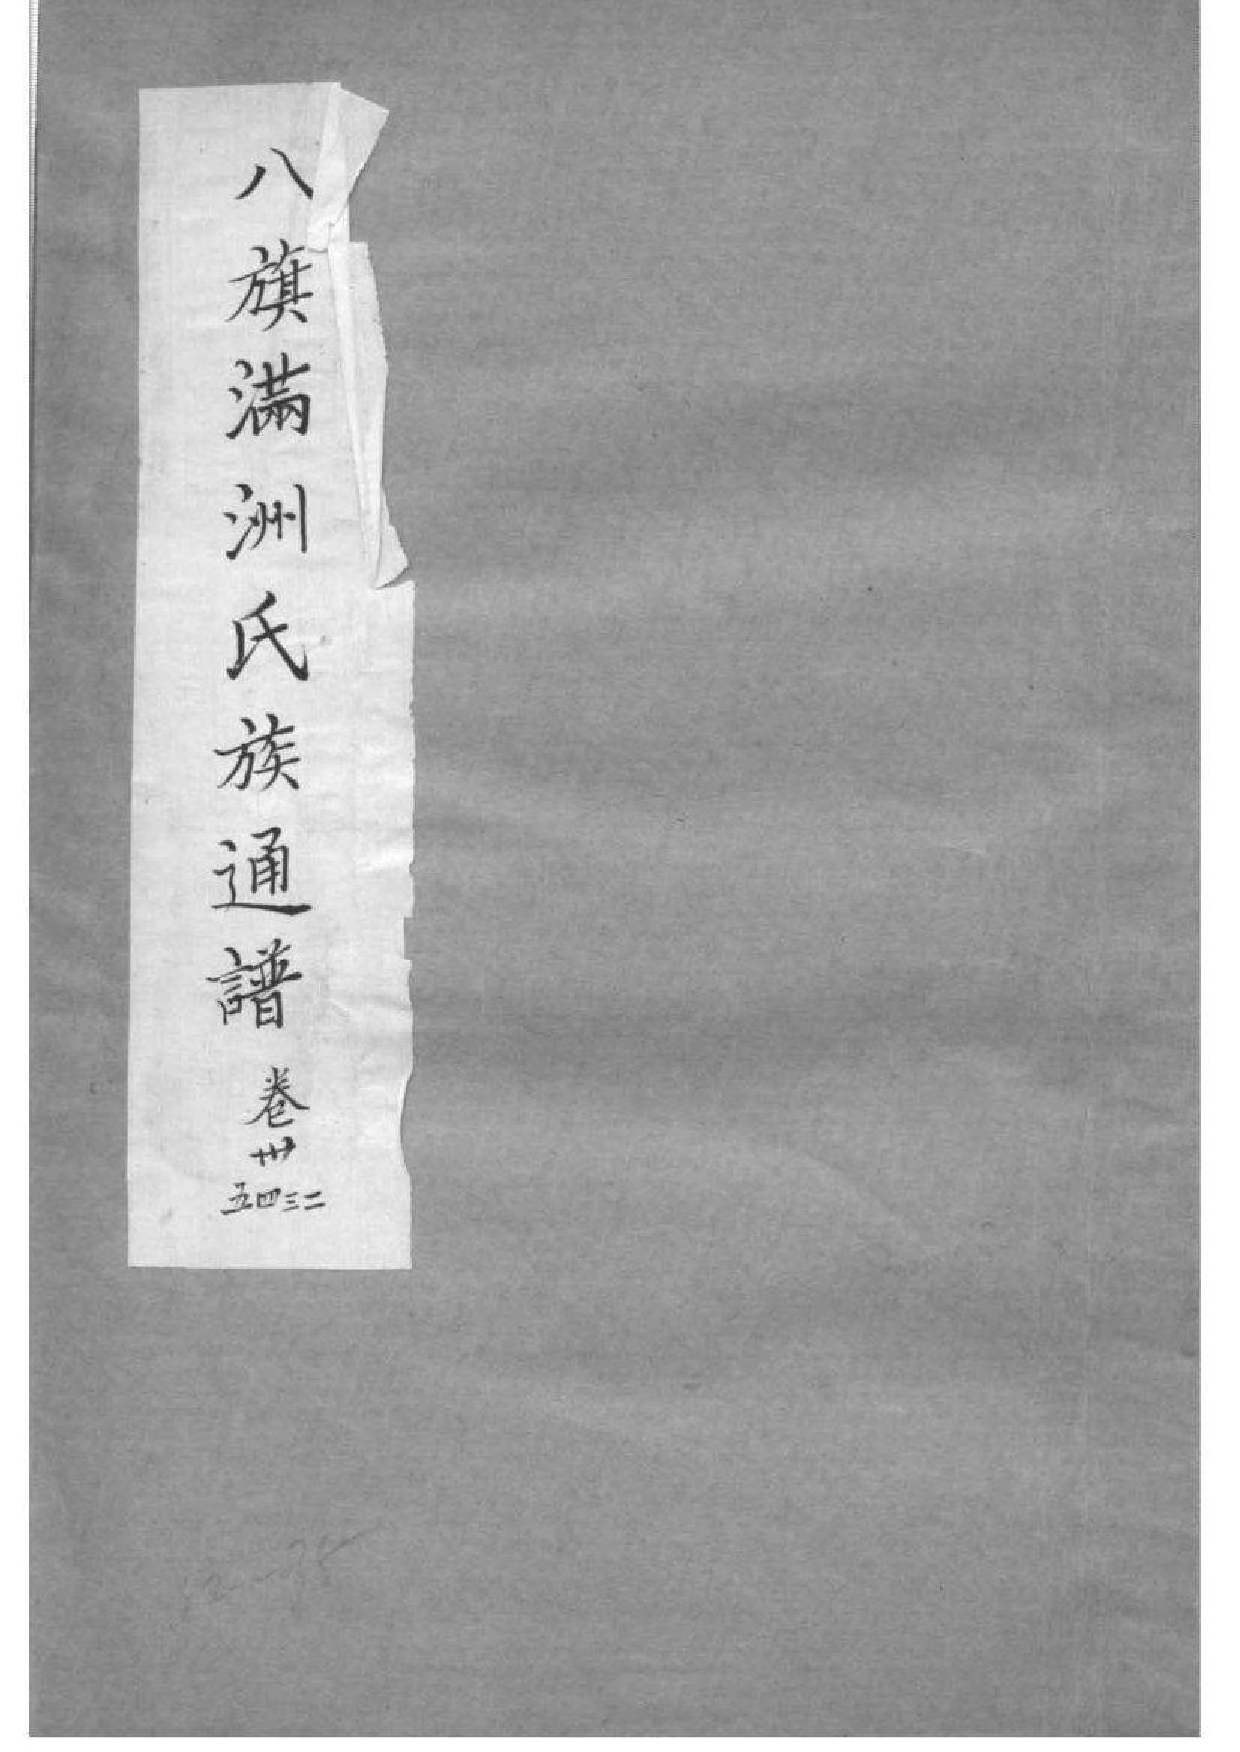 八旗滿洲氏族通譜
卷卅
二三四五